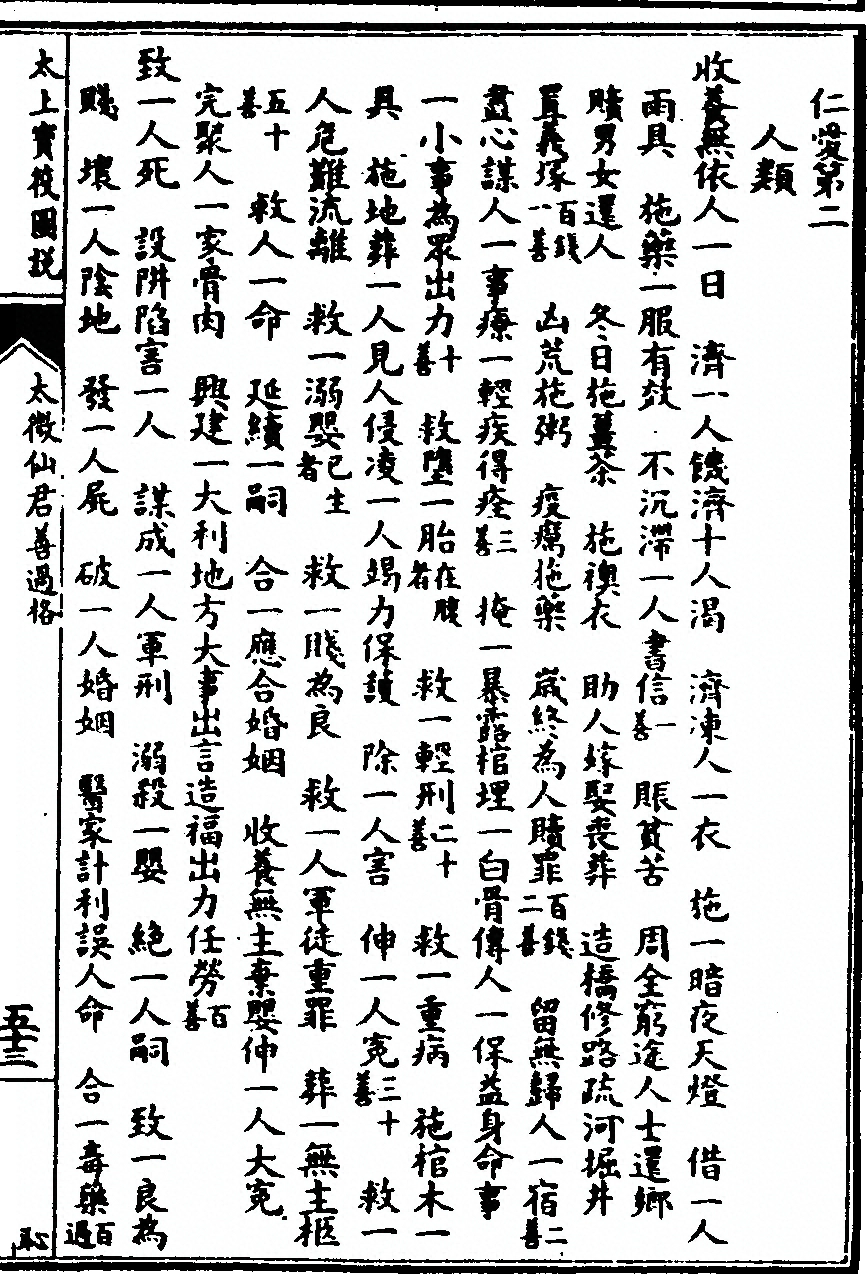 仁愛第二
人類
收養無依人一日 濟一人饑濟十人渴 濟凍人一衣 施一暗夜天燈 借一人
雨具 施藥一服有效 不沉滯一人書信一善 賑貧苦 周全窮途人士還鄉
贖男女還人 冬日施薑茶 施襖衣 助人嫁娶喪葬 造橋修路疏河掘井
置義塚百錢一善 凶荒施粥 疫癘施藥 歲終為人贖罪百錢二善 留無歸人一宿二善
盡心謀人一事療一輕疾得痊三善 掩一暴露棺埋一白骨傳人一保益身命事
一小事為眾出力十善 救墮一胎在腹者 救一輕刑二十善 救一重病 施棺木一
具 施地葬一人見人侵凌一人竭力保護 除一人害 伸一人冤三十善 救一
人危難流離 救一溺嬰已生者 救一賤為良 救一人軍徒重罪 葬一無主柩
五十善 救人一命 延續一嗣 合一應合婚姻 收養無主棄嬰伸一人大冤
完聚人一家骨肉 興建一大利地方大事出言造福出力任勞百善
致一人死 設阱陷害一人 謀成一人軍刑 溺殺一嬰 絕一人嗣 致一良為
賤 壞一人陰地 發一人屍 破一人婚姻 醫家計利誤人命 合一毒藥百過
太上寶筏圖說
太微仙君善過格
五十三